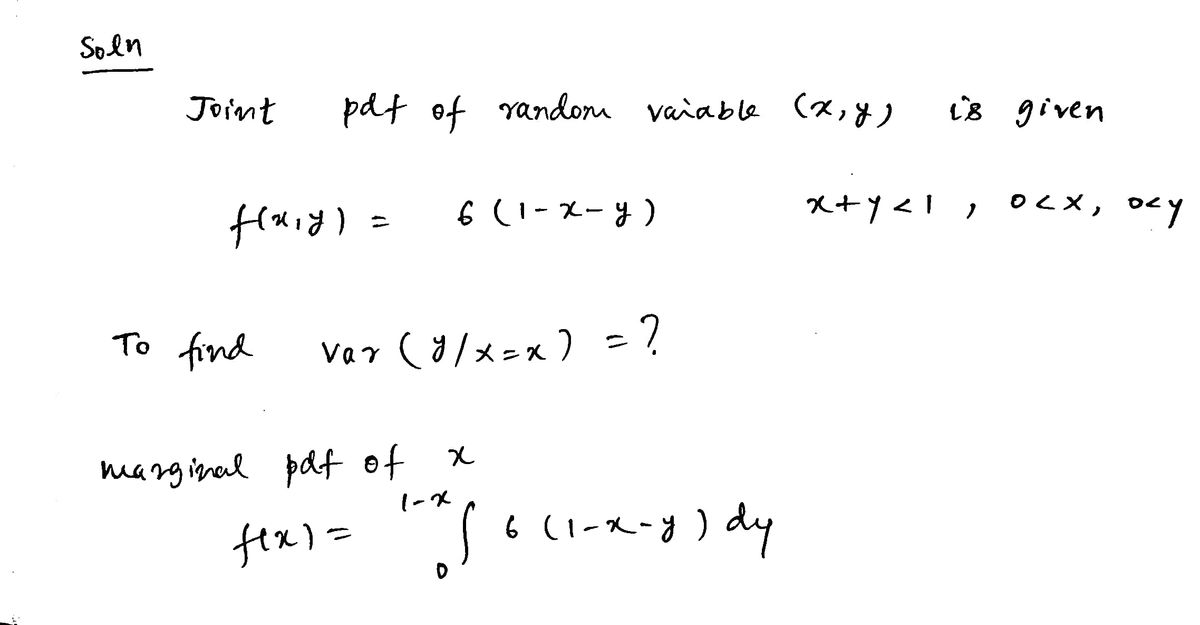 Soln
Joint pdf of random vaiable (x,y) is given
f(x,y) = 6 (1-x-y) x+y<1 , 0<x, 0<y
To find var (y/x=x) = ?
marginal pdf of x
f(x) = ∫₀^{1-x} 6 (1-x-y) dy